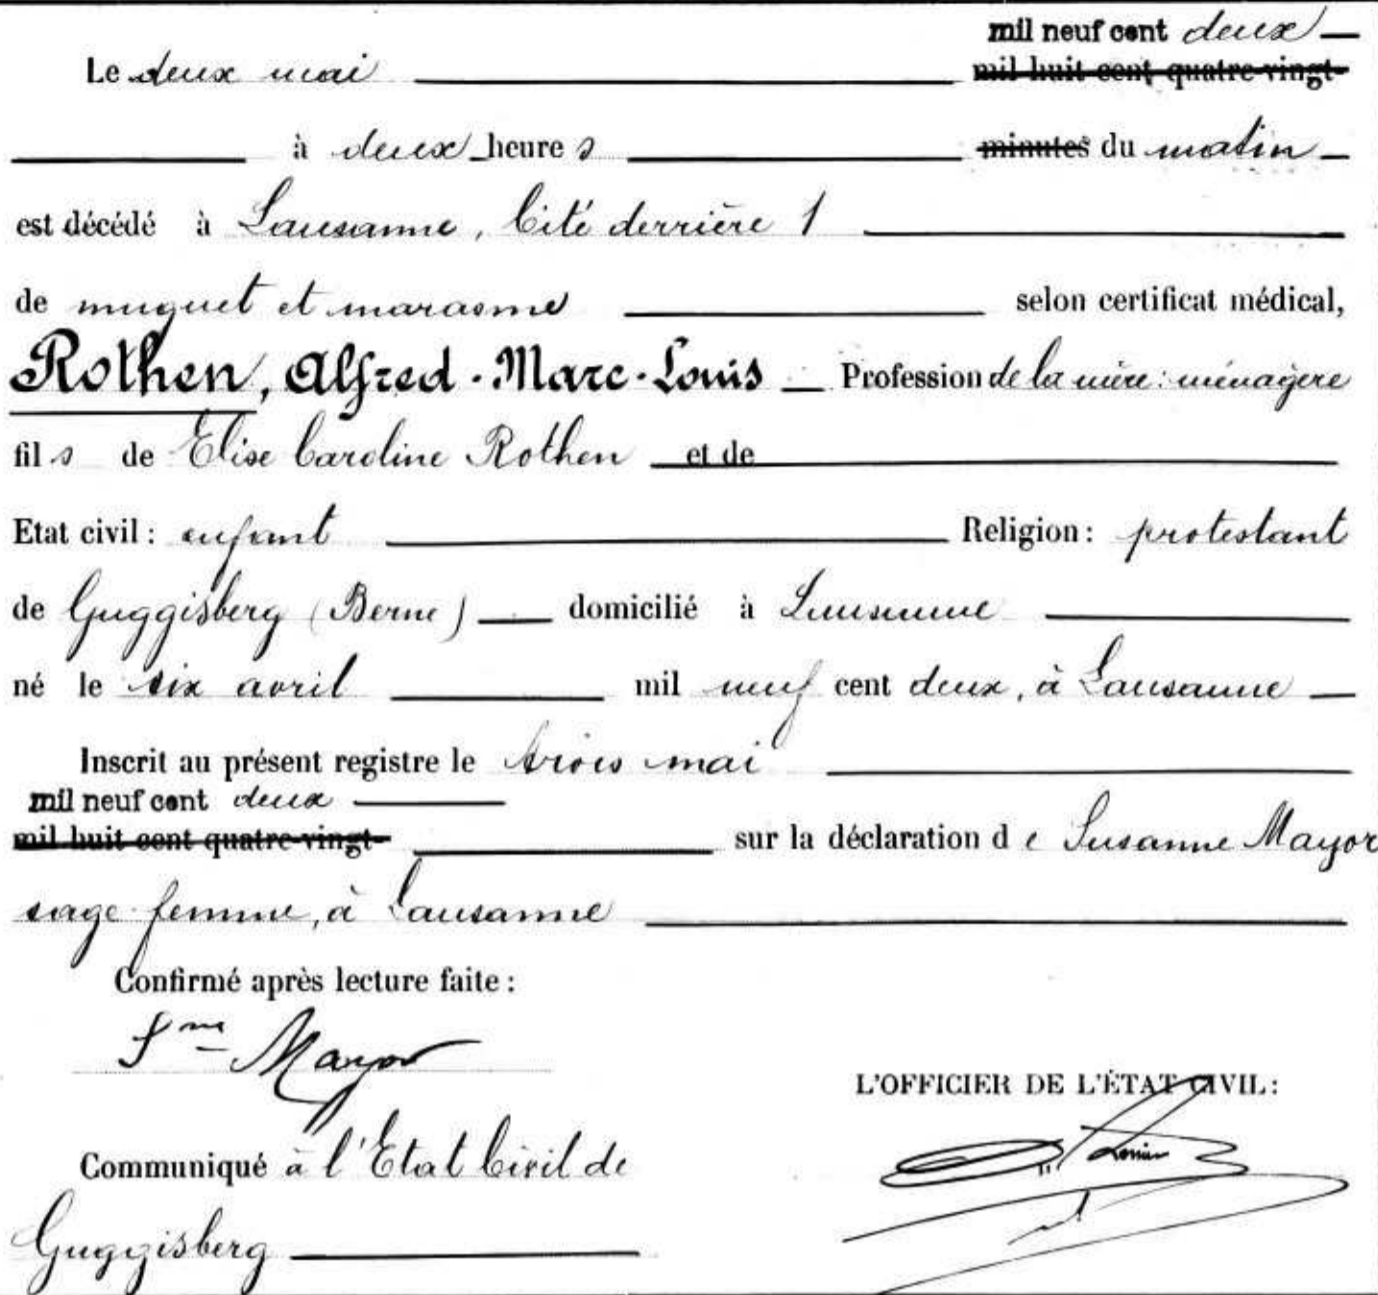 mil neuf cent deux
Le deux mai mil huit cent quatre-vingt-
à deux heures minutes du matin
est décédé à Lausanne, Cité derrière 1
de muguet et marasme selon certificat médical,
Rothen, Alfred-Marc-Louis Profession de la mère: ménagère
fils de Elise Caroline Rothen et de
Etat civil: enfant Religion: protestant
de Guggisberg (Berne) domicilié à Lausanne
né le six avril mil neuf cent deux, à Lausanne
Inscrit au présent registre le trois mai
mil neuf cent deux
mil huit cent quatre-vingt- sur la déclaration de Susanne Mayor
sage-femme, à Lausanne
Confirmé après lecture faite:
Sne Mayor
L'OFFICIER DE L'ÉTAT CIVIL:
Communiqué à l'Etat Civil de
Guggisberg